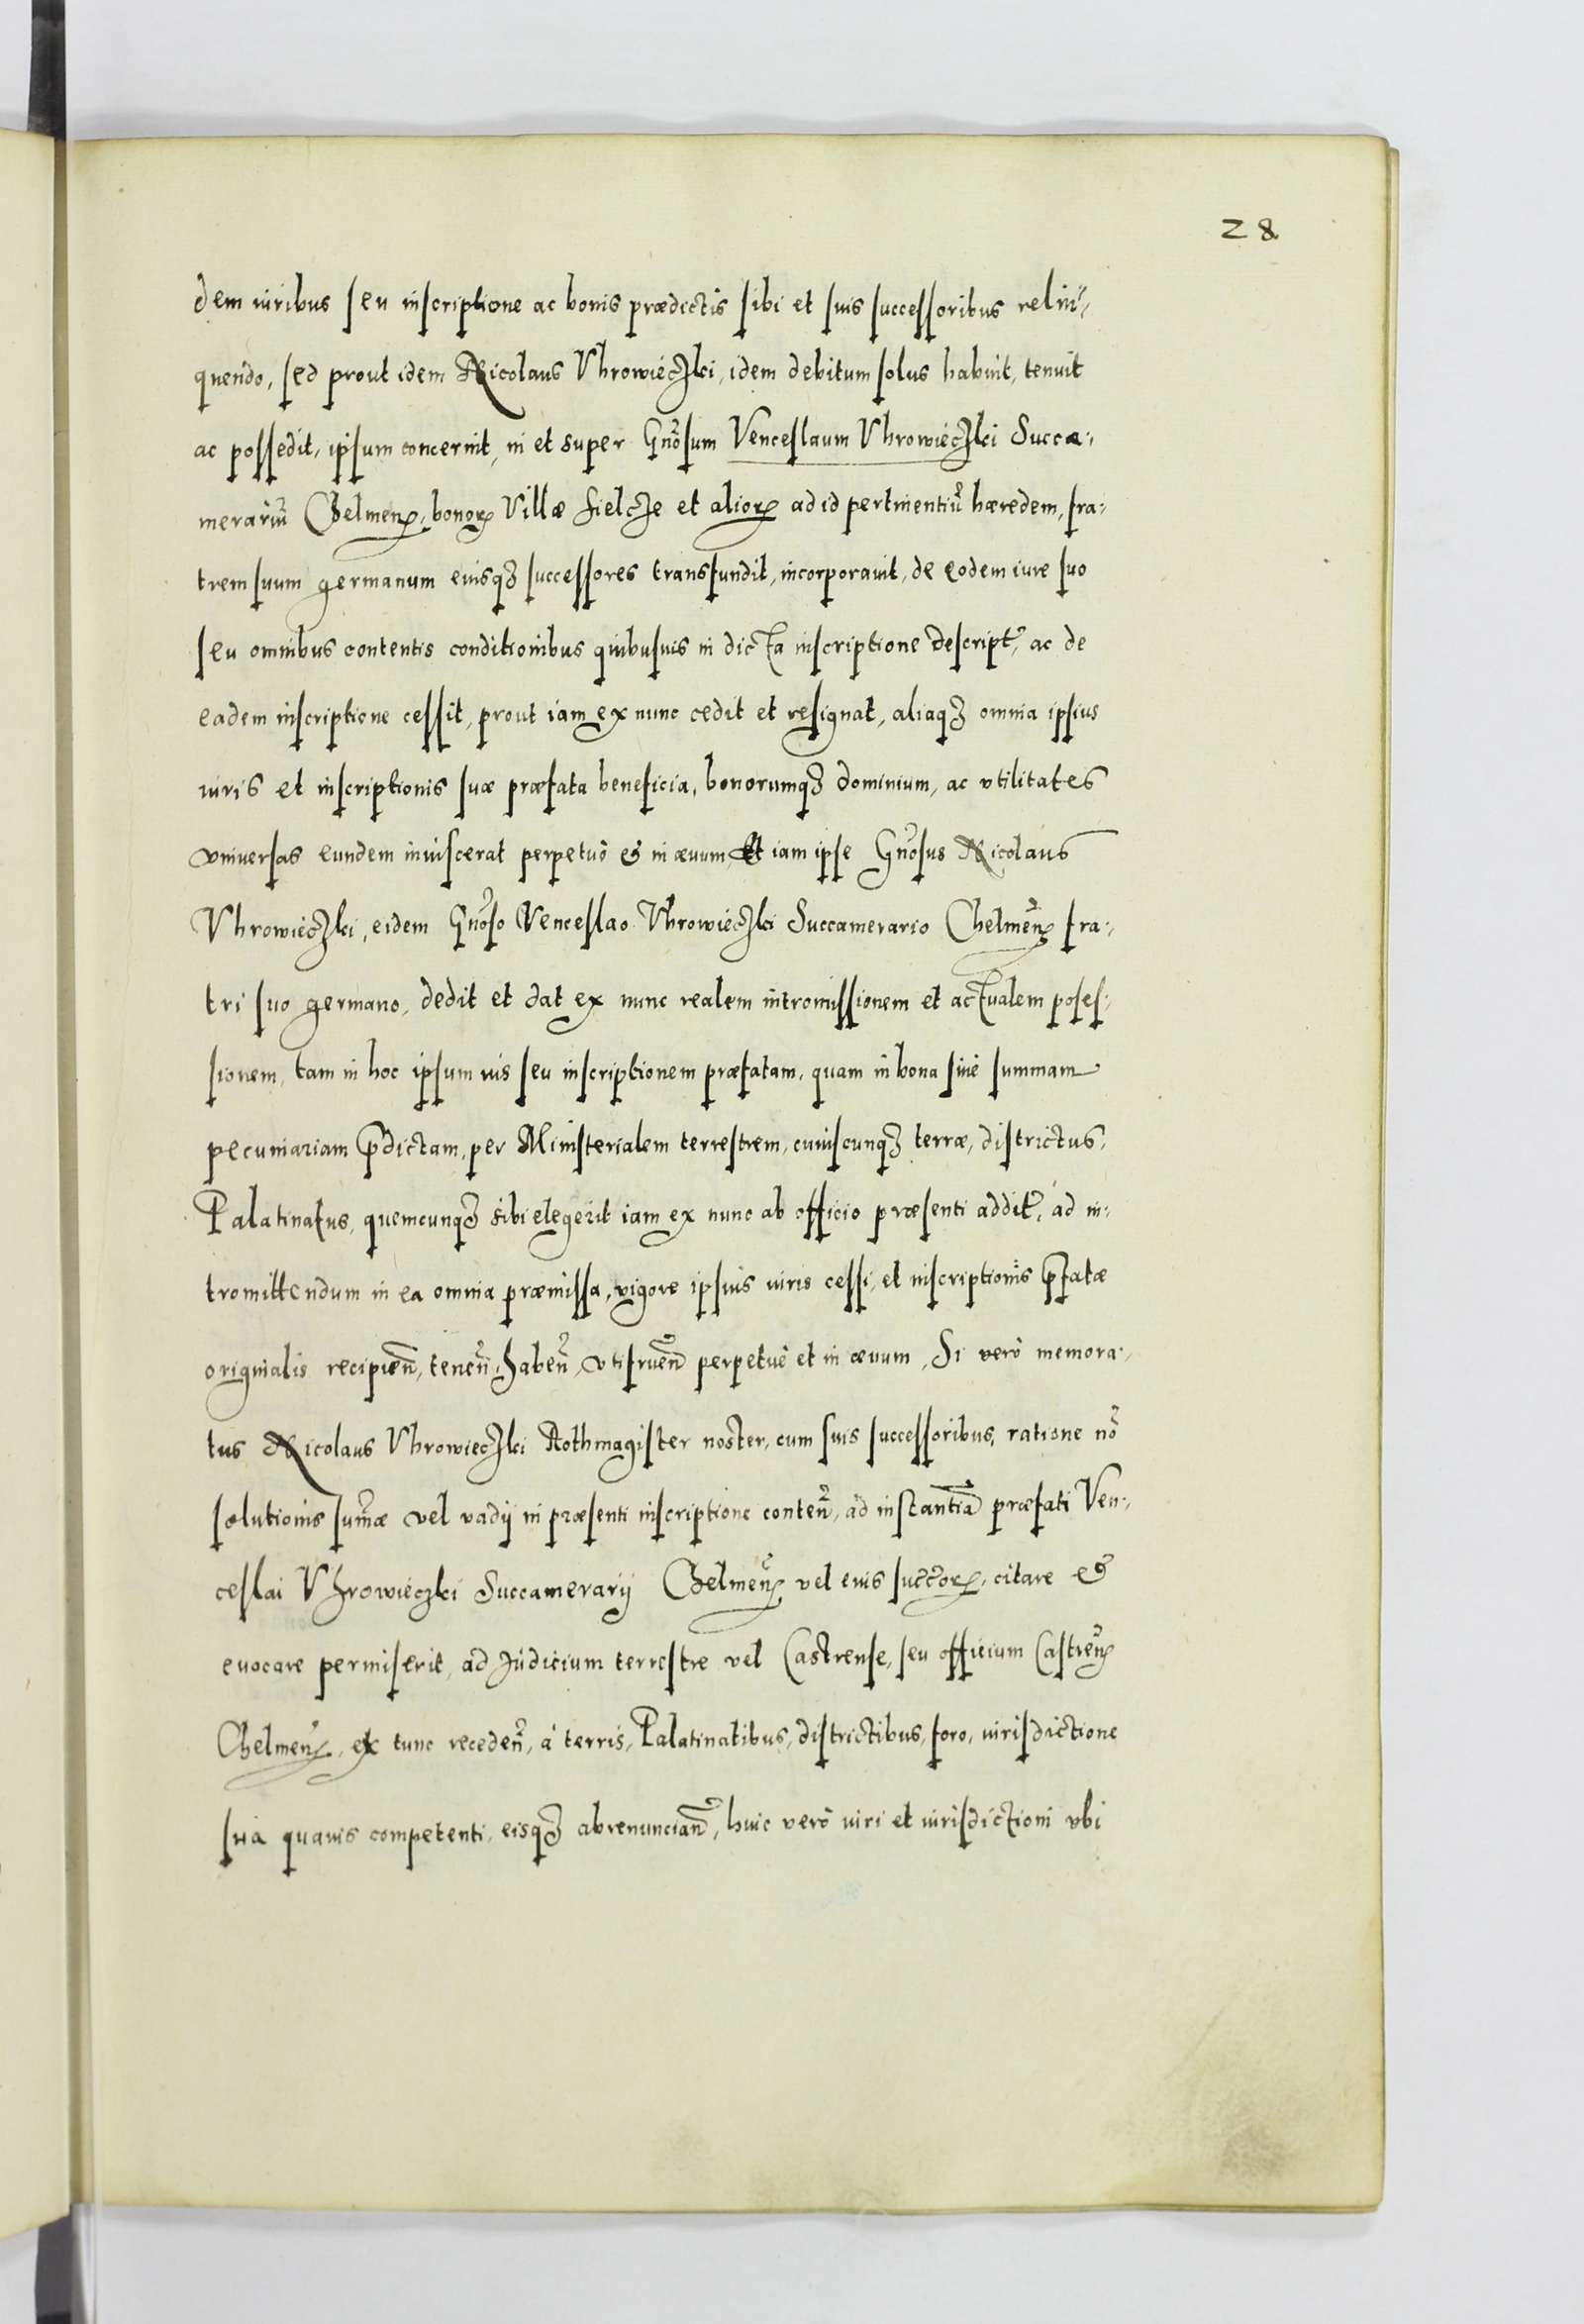 28
dem iuribus seu inscriptione ac bonis prædictis sibi et suis successoribus relin-
quendo, sed prout idem Nicolaus Vhrowieczki, idem debitum solus habuit, tenuit
ac possedit, ipsum concernit, in et super Gnõsum Venceslaum Vhrowieczki Succa-
merariũ Chelmen̄, bonoꝝ Villæ Sielcze et alioꝝ ad id pertinentiũ hæredem, fra-
trem suum germanum eiusqꝫ successores transfundit, incorporauit, de eodem iure suo
seu omnibus contentis conditionibus quibusuis in dicta inscriptione descript̃, ac de
eadem inscriptione cessit, prout iam ex nunc cedit et resignat, aliaqꝫ omnia ipsius
iuris et inscriptionis suæ præfata beneficia, bonorumqꝫ dominium, ac vtilitates
vniuersas eundem inuiscerat perpetuò et in æuum, Et iam ipse Gnõsus Nicolaus
Vhrowieczki, eidem Gnõso Venceslao Vhrowieczki Succamerario Chelmen̄ fra-
tri suo germano, dedit et dat ex nunc realem intromissionem et actualem poses-
sionem, tam in hoc ipsum ius seu inscriptionem præfatam, quam in bona siue summam
pecuniariam p̃dictam, per Ministerialem terrestrem, cuiuscunqꝫ terræ, districtus,
Palatinatus, quemcunqꝫ sibi elegerit iam ex nunc ab officio præsenti addit̃, ad in-
tromittendum in ea omnia præmissa, vigore ipsius iuris cessi, et inscriptionis p̃fatæ
originalis recipien̄, tenen̄, haben̄, vtifruen̄ perpetuè et in æuum, Si verò memora-
tus Nicolaus Vhrowieczki Rothmagister noster, cum suis successoribus, ratione nõ
solutionis sum̃æ vel vadij in præsenti inscriptione conten̄, ad instantiã præfati Ven-
ceslai Vhrowieczki Succamerarij Chelmen̄ vel eius succ̃oꝝ, citare et
euocare permiserit, ad Iudicium terrestre vel Castrense, seu officium Castren̄
Chelmen̄, ex tunc receden̄, à terris, Palatinatibus, districtibus, foro, iurisdictione
sua quauis competenti, eisqꝫ abrenuncian̄, huic verò iuri et iurisdictioni vbi